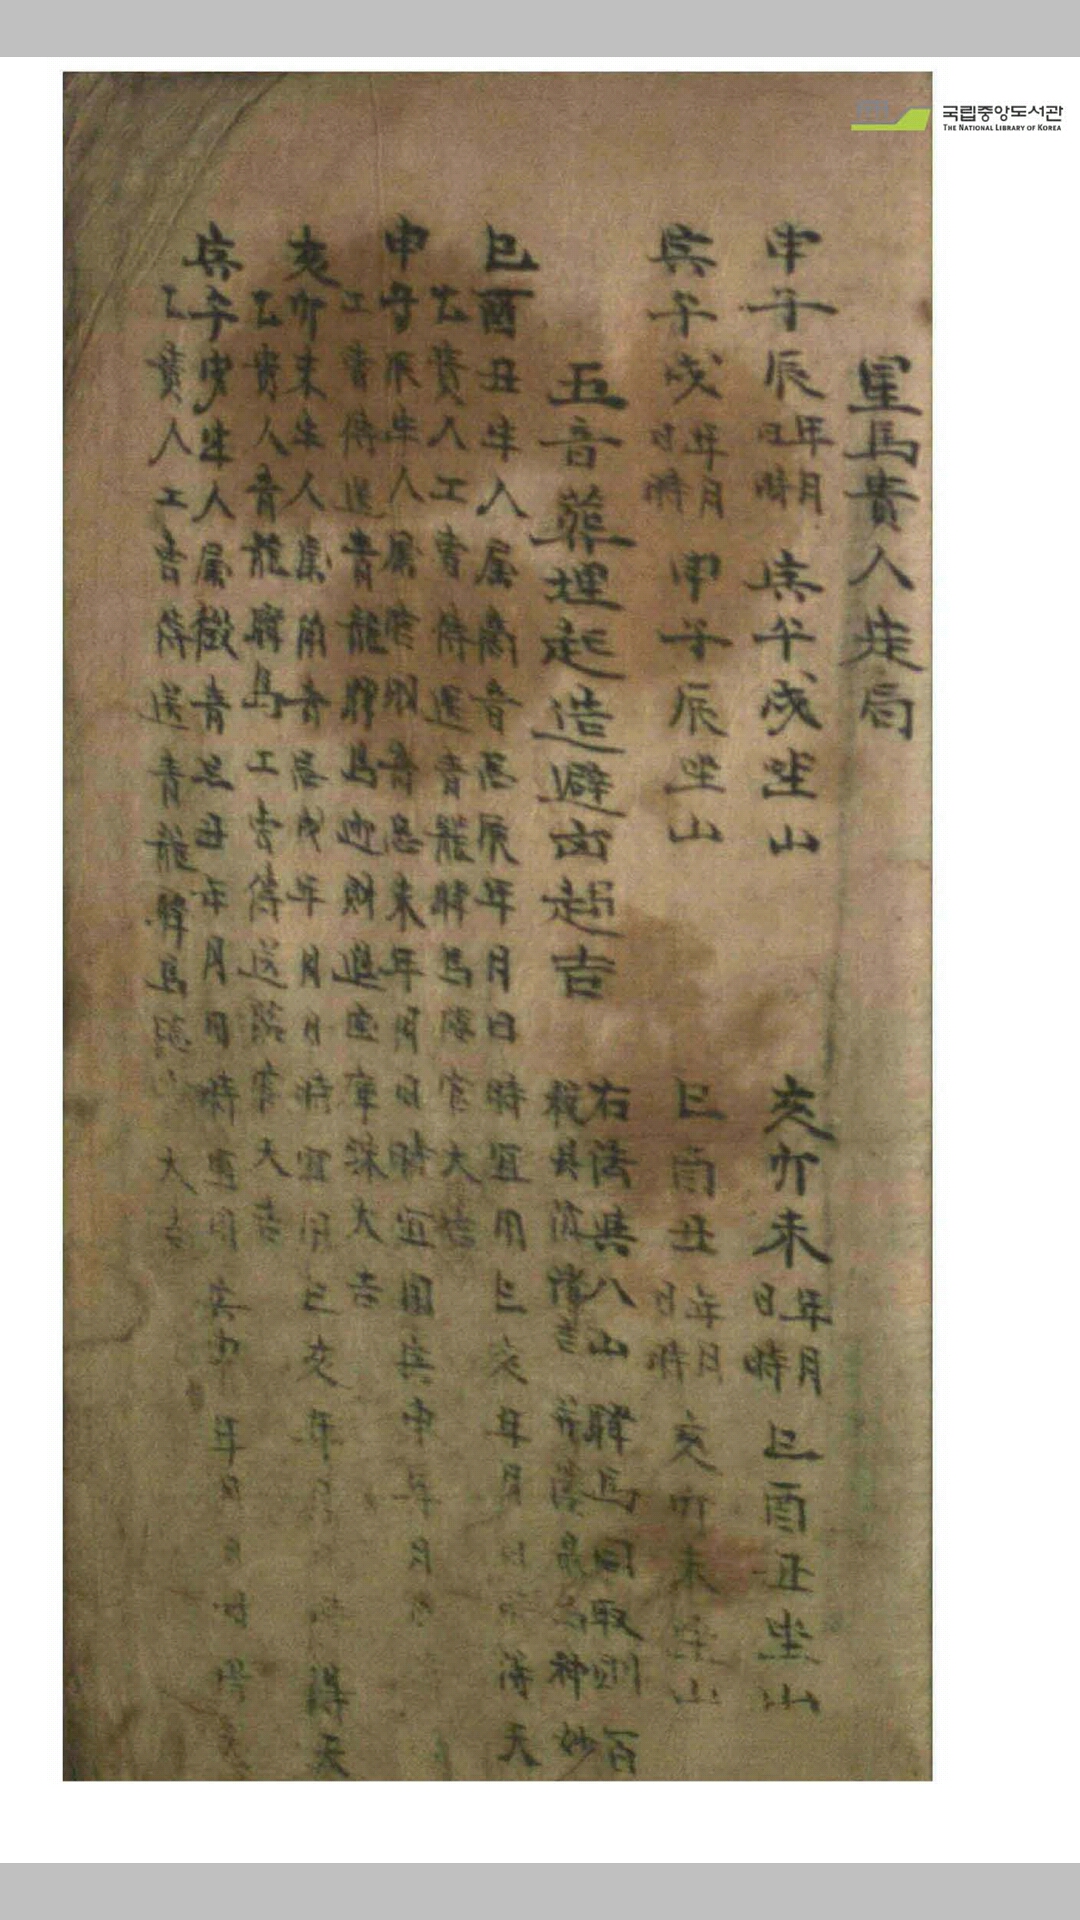 국립중앙도서관
THE NATIONAL LIBRARY OF KOREA
星馬貴人定局
申子辰年月日時 寅午戌坐山 亥卯未年月日時 巳酉丑坐山
寅午戌年月日時 申子辰坐山 巳酉丑年月日時 亥卯未坐山
五音葬埋起造避凶趍吉 右法與八山驛馬同取則百
殺
神妙
巳酉丑生人属商音忌辰年月日時宜用巳亥年月 得天
乙貴人工曹傳送青龍驛馬臨官大吉
申子辰生人属 音忌未年月日時宜用寅申年月
工曹傳送青龍驛馬迎財進 庫珠大吉
亥卯未生人属角音忌戌年月日時宜用巳亥年 得天
乙貴人青龍驛馬工曹傳送臨官大吉
寅午戌生人属徵音忌丑年月日時宜用寅申年月日時得天
乙貴人工曹傳送青龍驛馬臨 大吉